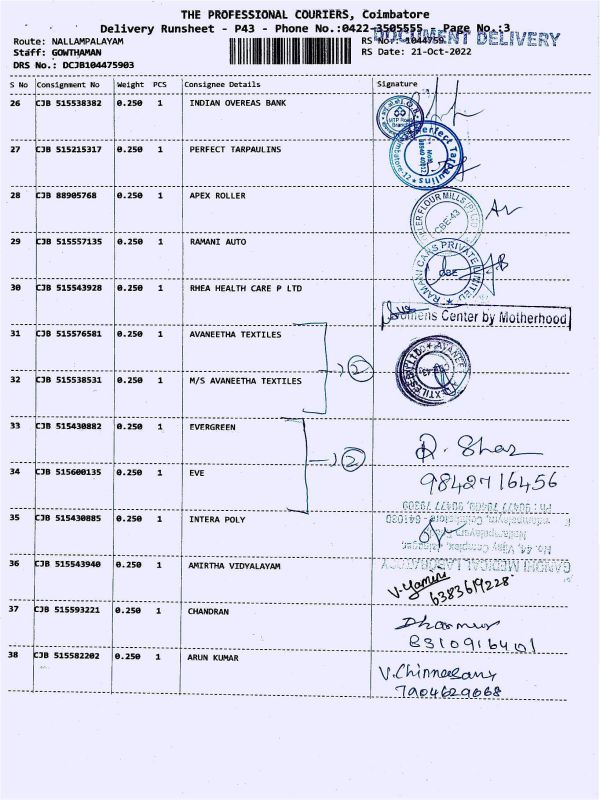 THE PROFESSIONAL COURIERS, Coimbatore
Delivery Runsheet - P43 - Phone No.:0422-3505555 Page No.:3
DOCUMENT DELIVERY
Route: NALLAMPALAYAM RS No.: 1044759
Staff: GOWTHAMAN RS Date: 21-Oct-2022
DRS No.: DCJB104475903
S No Consignment No Weight PCS Consignee Details Signature
26 CJB 515538382 0.250 1 INDIAN OVEREAS BANK
27 CJB 515215317 0.250 1 PERFECT TARPAULINS
Perfect Tarpaulins
28 CJB 88905768 0.250 1 APEX ROLLER
FLOUR MILLS
CBE-43
29 CJB 515557135 0.250 1 RAMANI AUTO
RAMANI CARS PRIVATE LIMITED
CBE
30 CJB 515543928 0.250 1 RHEA HEALTH CARE P LTD
Womens Center by Motherhood
31 CJB 515576581 0.250 1 AVANEETHA TEXTILES
2
32 CJB 515538531 0.250 1 M/S AVANEETHA TEXTILES
33 CJB 515430882 0.250 1 EVERGREEN
2
34 CJB 515600135 0.250 1 EVE
9842716456
35 CJB 515430885 0.250 1 INTERA POLY
No. 44, Vijay Complex,
GANDHI MEDICAL LABORATORY
36 CJB 515543940 0.250 1 AMIRTHA VIDYALAYAM
V. Yamini
6383619228
37 CJB 515593221 0.250 1 CHANDRAN
8310916401
38 CJB 515582202 0.250 1 ARUN KUMAR
V. Chinnasamy
7904629068